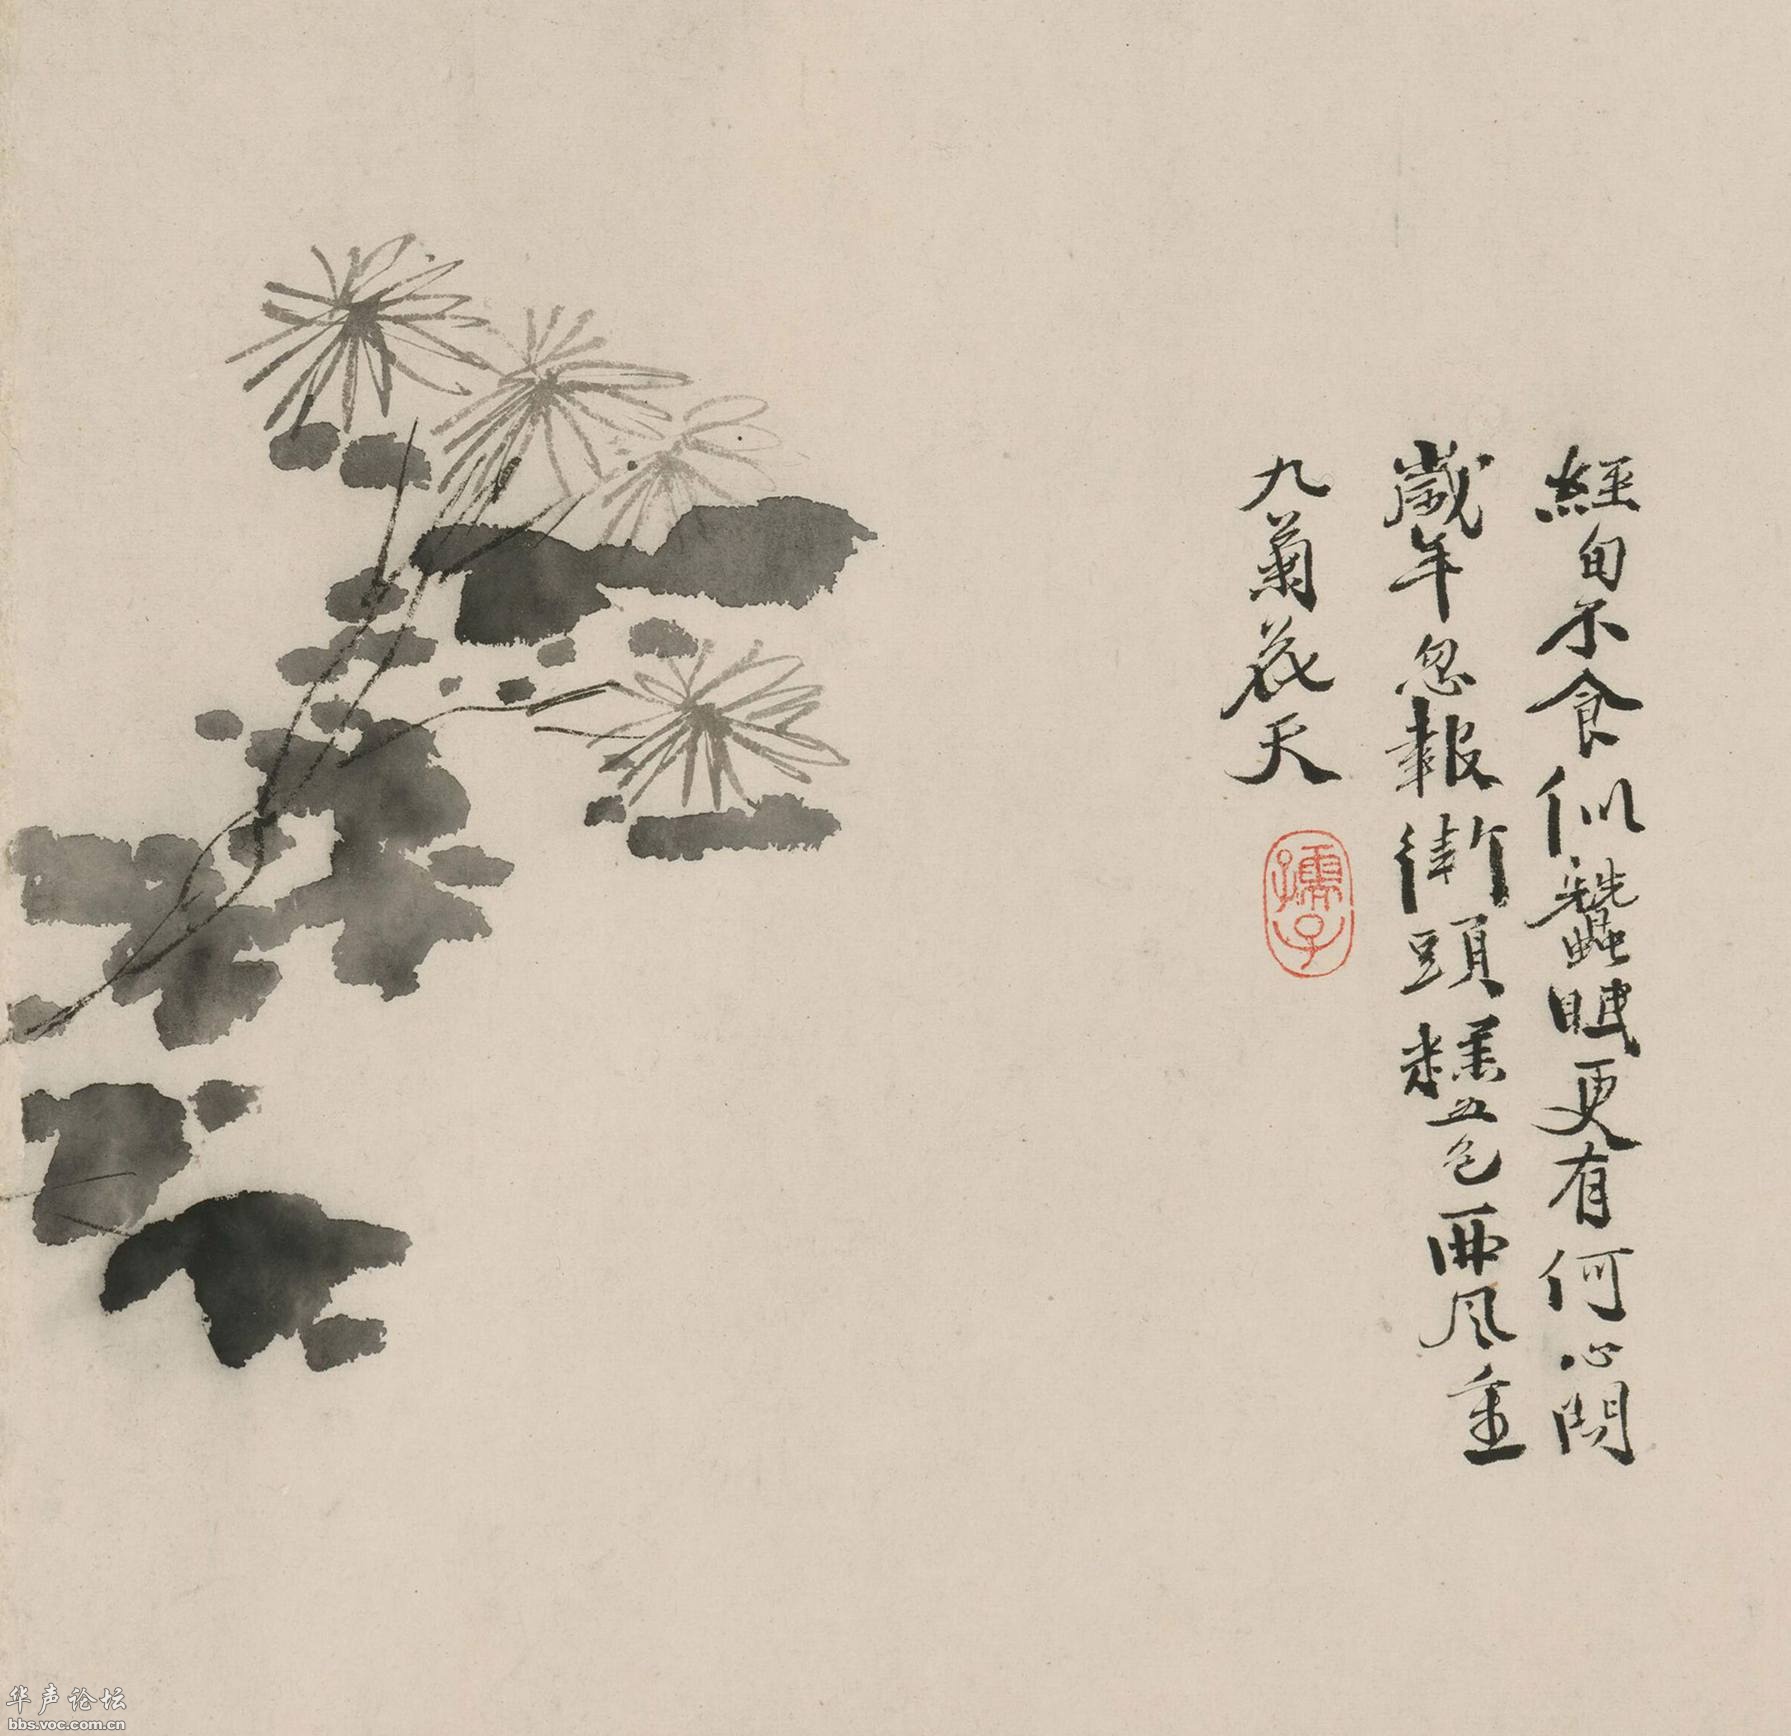 經旬不食似蠶眠更有何心問
歲年忽報街頭糕五色西風重
九菊花天
孺子
华声论坛
bbs.voc.com.cn